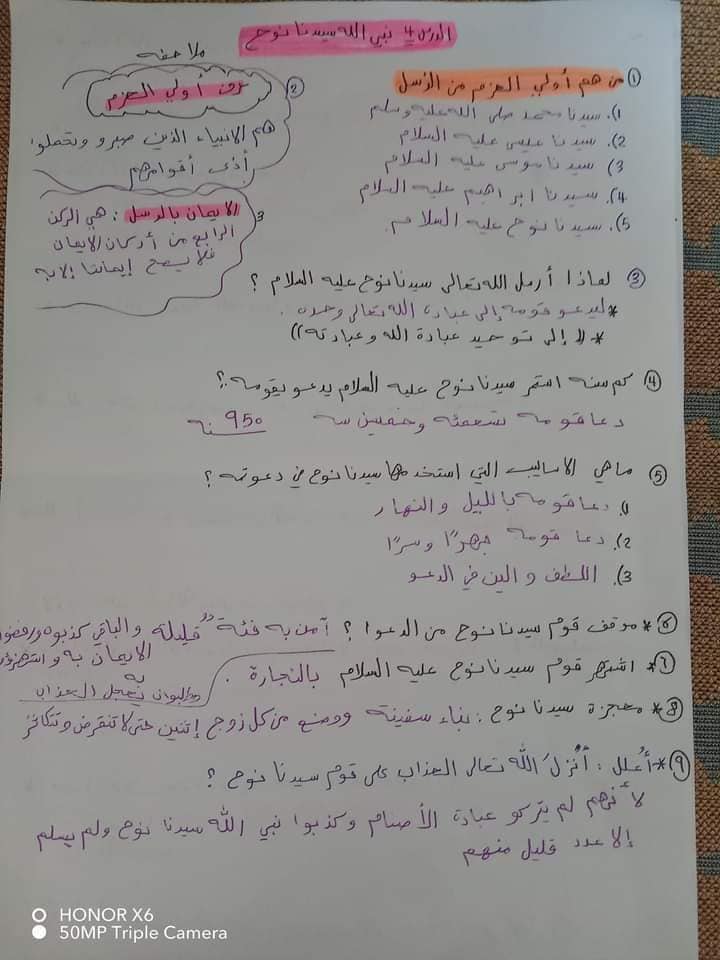 الدرس 4 نبي الله سيدنا نوح
ملاحظه
① من هم أولي العزم من الرسل
1). سيدنا محمد صلى الله عليه وسلم
2). سيدنا عيسى عليه السلام
3) سيدنا موسى عليه السلام
4). سيدنا ابراهيم عليه السلام
5). سيدنا نوح عليه السلام
② عرف أولي العزم
هم الانبياء الذين صبرو وتحملوا
أذى أقوامهم
3 الايمان بالرسل : هي الركن
الرابع من أركان الايمان
فلا يصح إيماننا إلا به
③ لماذا أرسل الله تعالى سيدنا نوح عليه السلام ؟
* ليدعو قومه إلى عبادة الله تعالى وحده .
* (( إلى توحيد عبادة الله وعبادته ))
④ كم سنه استمر سيدنا نوح عليه السلام يدعو بقومه ..؟
دعا قومه تسعمئه وخمسين سه 950 سنه
⑤ ماهي الاساليب التي استخدمها سيدنا نوح في دعوته ؟
1). دعا قومه بالليل والنهار
2). دعا قومه جهرًا وسرًا
3). اللطف والين في الدعو
⑥ * موقف قوم سيدنا نوح من الدعوا ؟ آمن به فئة قليلة والباقي كذبوه ورفضوا
الايمان به واستهزؤا
به
العذاب
⑦ * اشتهر قوم سيدنا نوح عليه السلام بالنجارة .
⑧ * معجزة سيدنا نوح : بناء سفينة ووضع من كل زوج إتنين حتى لا تنقرض وتتكاثر
⑨ * أُعلل : أنزلَ الله تعالى العذاب على قوم سيدنا نوح ؟
لأنهم لم يتركو عبادة الأصنام وكذبوا نبي الله سيدنا نوح ولم يسلم
إلا عدد قليل منهم
HONOR X6
50MP Triple Camera